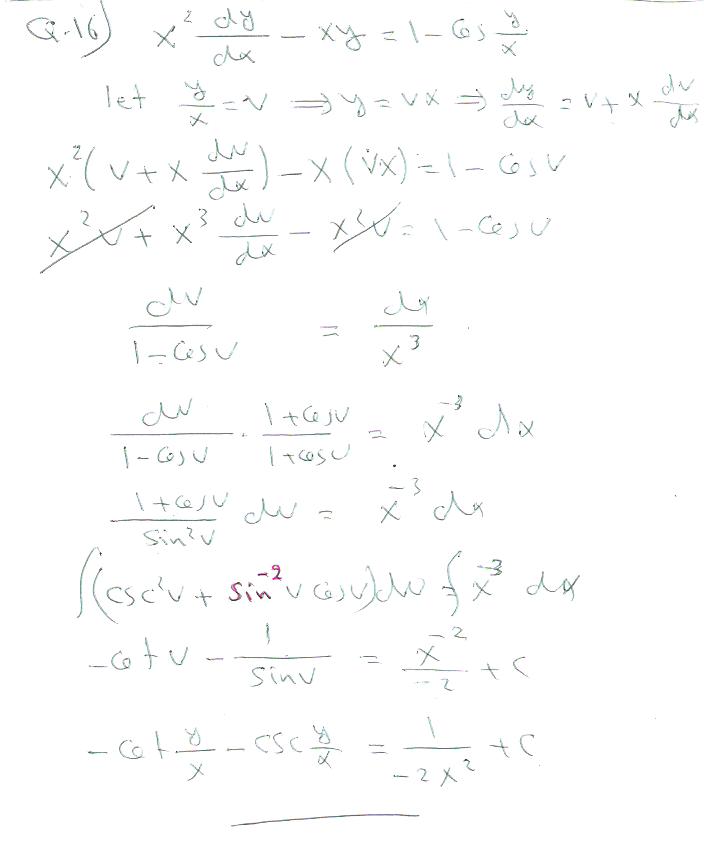 Q.16) x² dy/dx - xy = 1 - Cos y/x
let y/x = v ⟹ y = vx ⟹ dy/dx = v + x dv/dx
x² (v + x dv/dx) - x (vx) = 1 - Cos v
x²v + x³ dv/dx - x²v = 1 - Cos v
dv/(1 - Cos v) = dx/x³
dv/(1 - Cos v) · (1 + Cos v)/(1 + cos v) = x⁻³ dx
(1 + Cos v)/Sin²v dv = x⁻³ dx
∫(csc²v + Sin⁻²v Cos v) dv = ∫x⁻³ dx
-Cot v - 1/Sin v = x⁻²/-2 + C
-Cot y/x - CSC y/x = 1/-2x² + C